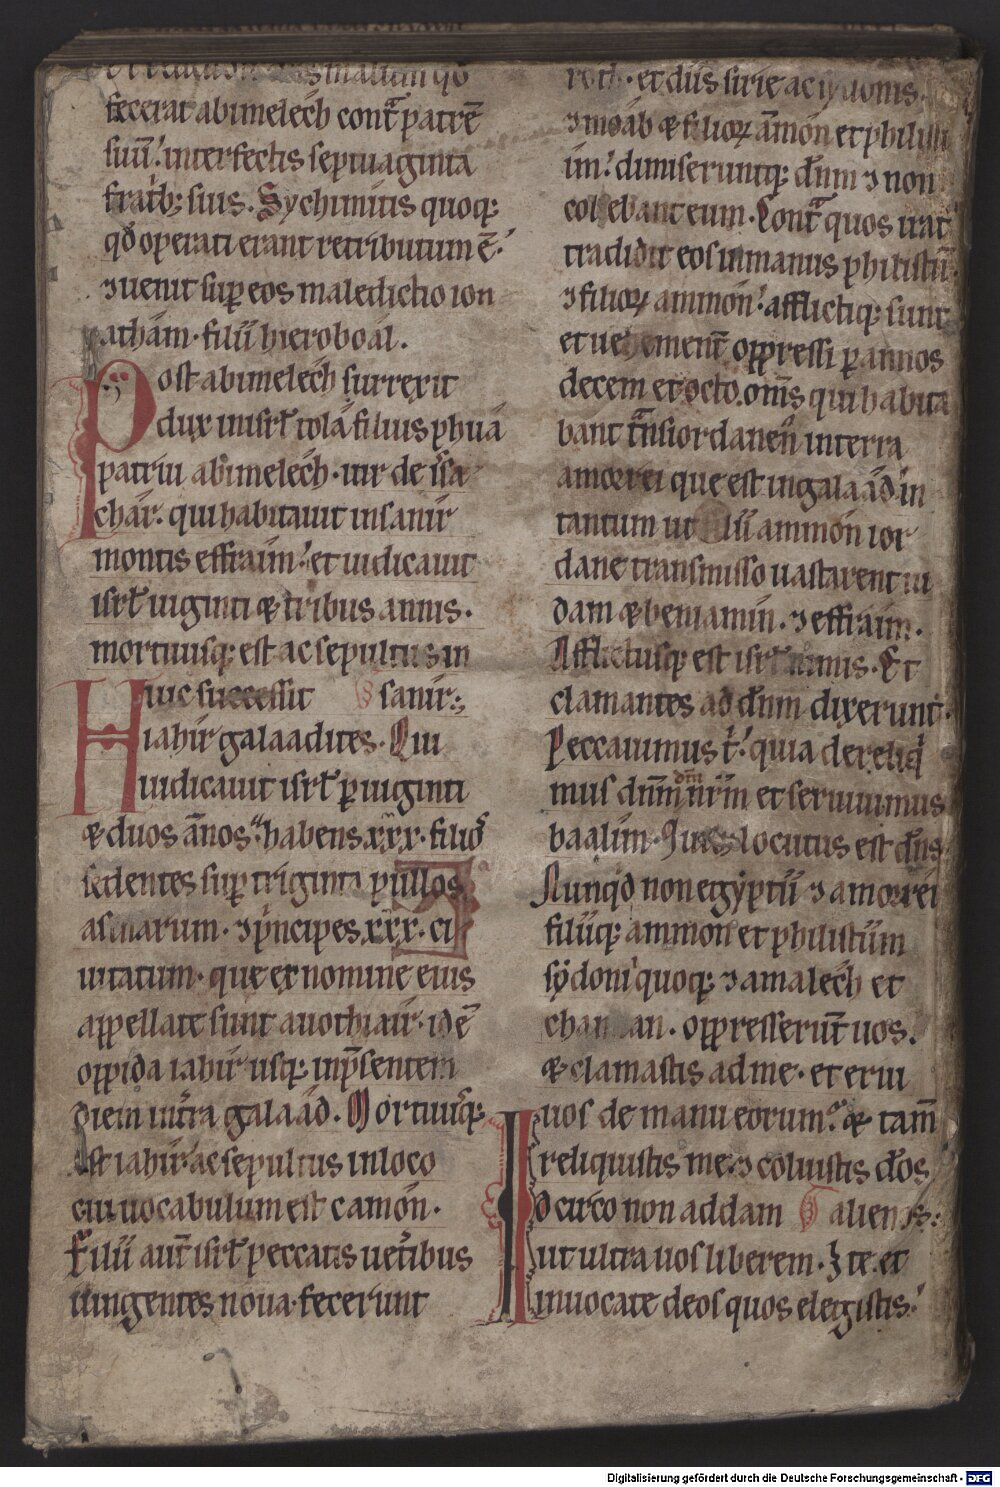 malum qd
fecerat abimelech cont̃ patrẽ
suũ. interfectis septuaginta
fratb; suis. Sychimitis quoq;
qd operati erant retributum ẽ.
⁊ uenit sup eos maledictio ion
athám. filii hieroboál.
Post abimelech surrexit
dux in isrl̃ tolá filius phuá
patrui abimelech. uir de issa
chár. qui habitauit in sanír
montis effraím. et iudicauit
isrl̃ uiginti & tribus annis.
mortuusq; est ac sepultus in
sanír.
Huic successit
iahír galaadites. Qui
iudicauit isrl̃ p uiginti
& duos ãnos. habens xxx. filios
sedentes sup triginta pullos
asinarum. ⁊ pncipes xxx. ci
uitatum. que ex nomine eius
appellate sunt auothiaír. id ẽ
oppida iahír usq; in p̃sentem
diem in tra galaád. Mortuusq;
est iahír. ac sepultus in loco
cui uocabulum est camón.
Filii aut̃ isrl̃ peccatis uetibus
iungentes noua. fecerunt
roth. et diis sirie ac sydonis.
⁊ moáb & filioꝝ ãmón et philisti
im. dimiseruntq; dnm ⁊ non
colebant eum. Cont̃ quos irat
tradidit eos in manus philistiĩ.
⁊ filioꝝ ammón. afflictiq; sunt
et uehement̃ oppressi p annos
decem et octo. omс̃s qui habita
bant t̃ns iordanen in terra
amorrei que est in galaád. in
tantum ut filii ammón ior
dane transmisso uastarent iu
dam & beniamín. ⁊ effraím.
Afflictusq; est isrl̃ nimis. Et
clamantes ad dnm dixerunt.
Peccauimus t̃. quia dereliq
mus dnm dm nr̃m et seruiuimus
baalím. Quis locutus est dns
Nunqd non egyptii ⁊ amorréi
filiiq; ammon et philistiim
sydonii quoq; ⁊ amalech et
chanaan. oppresserũt uos.
& clamastis ad me. et erui
uos de manu eorum. & tam̃
reliquistis me. ⁊ coluistis dеos
alienos.
Idcirco non addam
ut ultra uos liberem. Ite et
inuocate deos quos elegistis.
Digitalisierung gefördert durch die Deutsche Forschungsgemeinschaft - DFG